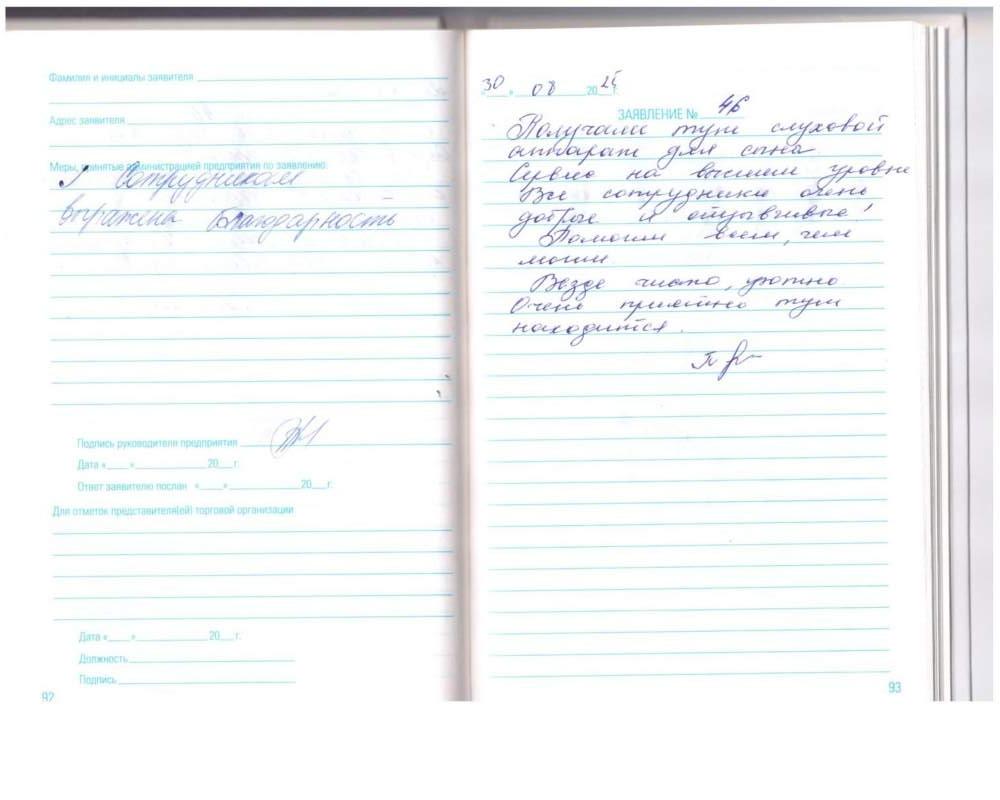 Фамилия и инициалы заявителя
Адрес заявителя
Меры, принятые администрацией предприятия по заявлению:
Сотрудникам
выражена благодарность
Подпись руководителя предприятия
Дата «____»____20__г.
Ответ заявителю послан «____»____20__г.
Для отметок представителя(ей) торговой организации
Дата «____»____20__г.
Должность
Подпись
92
«30» 08 2025 г.
ЗАЯВЛЕНИЕ № 46
Получали тут слуховой
аппарат для сына
Сервис на высшем уровне
Все сотрудники очень
добрые и отзывчивые!
Помогли всем, чем
могли
Везде чисто, уютно
Очень приятно тут
находится.
93